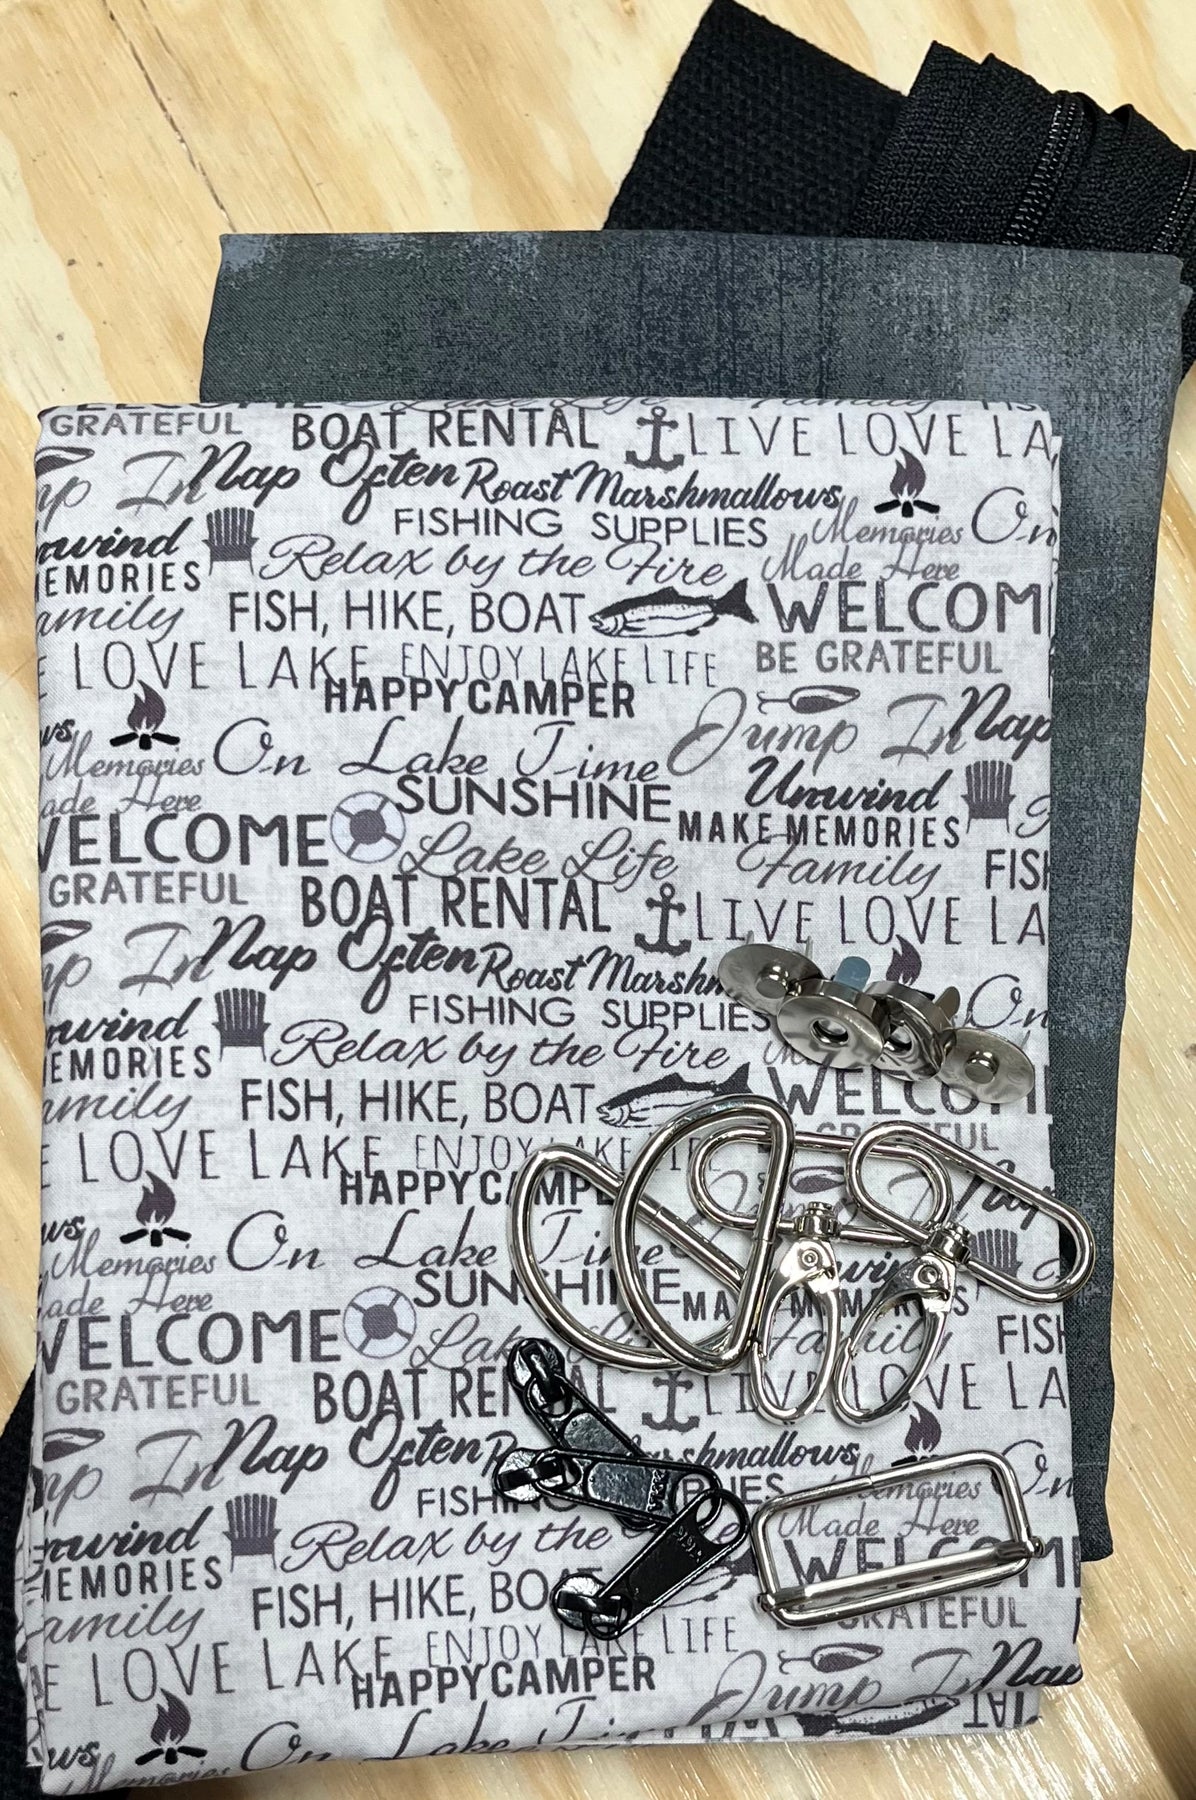 WELCOME Lake Life Family FIS
GRATEFUL BOAT RENTAL LIVE LOVE LA
mp In Nap Often Roast Marshmallows
FISHING SUPPLIES Memories On
nwind Relax by the Fire Made Here
MEMORIES
amily FISH, HIKE, BOAT WELCOM
E LOVE LAKE ENJOY LAKE LIFE BE GRATEFUL
HAPPY CAMPER
ws Jump In Nap
Memories On Lake Time
ade Here SUNSHINE Unwind
WELCOME Lake Life MAKE MEMORIES
GRATEFUL Family FISH
BOAT RENTAL LIVE LOVE LA
mp In Nap Often Roast Marshm
FISHING SUPPLIES On
nwind Relax by the Fire
MEMORIES
amily FISH, HIKE, BOAT WELCOM
E LOVE LAKE ENJOY LAKE LIFE GRATEFUL
HAPPY CAMPE Nap
ws
Memories On Lake Time
ade Here SUNSHINE
WELCOME Lake Li MA MEMORIES
GRATEFUL Family FISH
BOAT RENTAL LIVE LOVE LA
mp In Nap Often R arshmallows
FISHIN PLIES Memories On
nwind Relax by the Made Here
MEMORIES
amily FISH, HIKE, BOA WELCOM
E LOVE LAKE ENJOY LAKE LIFE GRATEFUL
HAPPY CAMPER
ws Jump In Nap
Memories On Lake Time